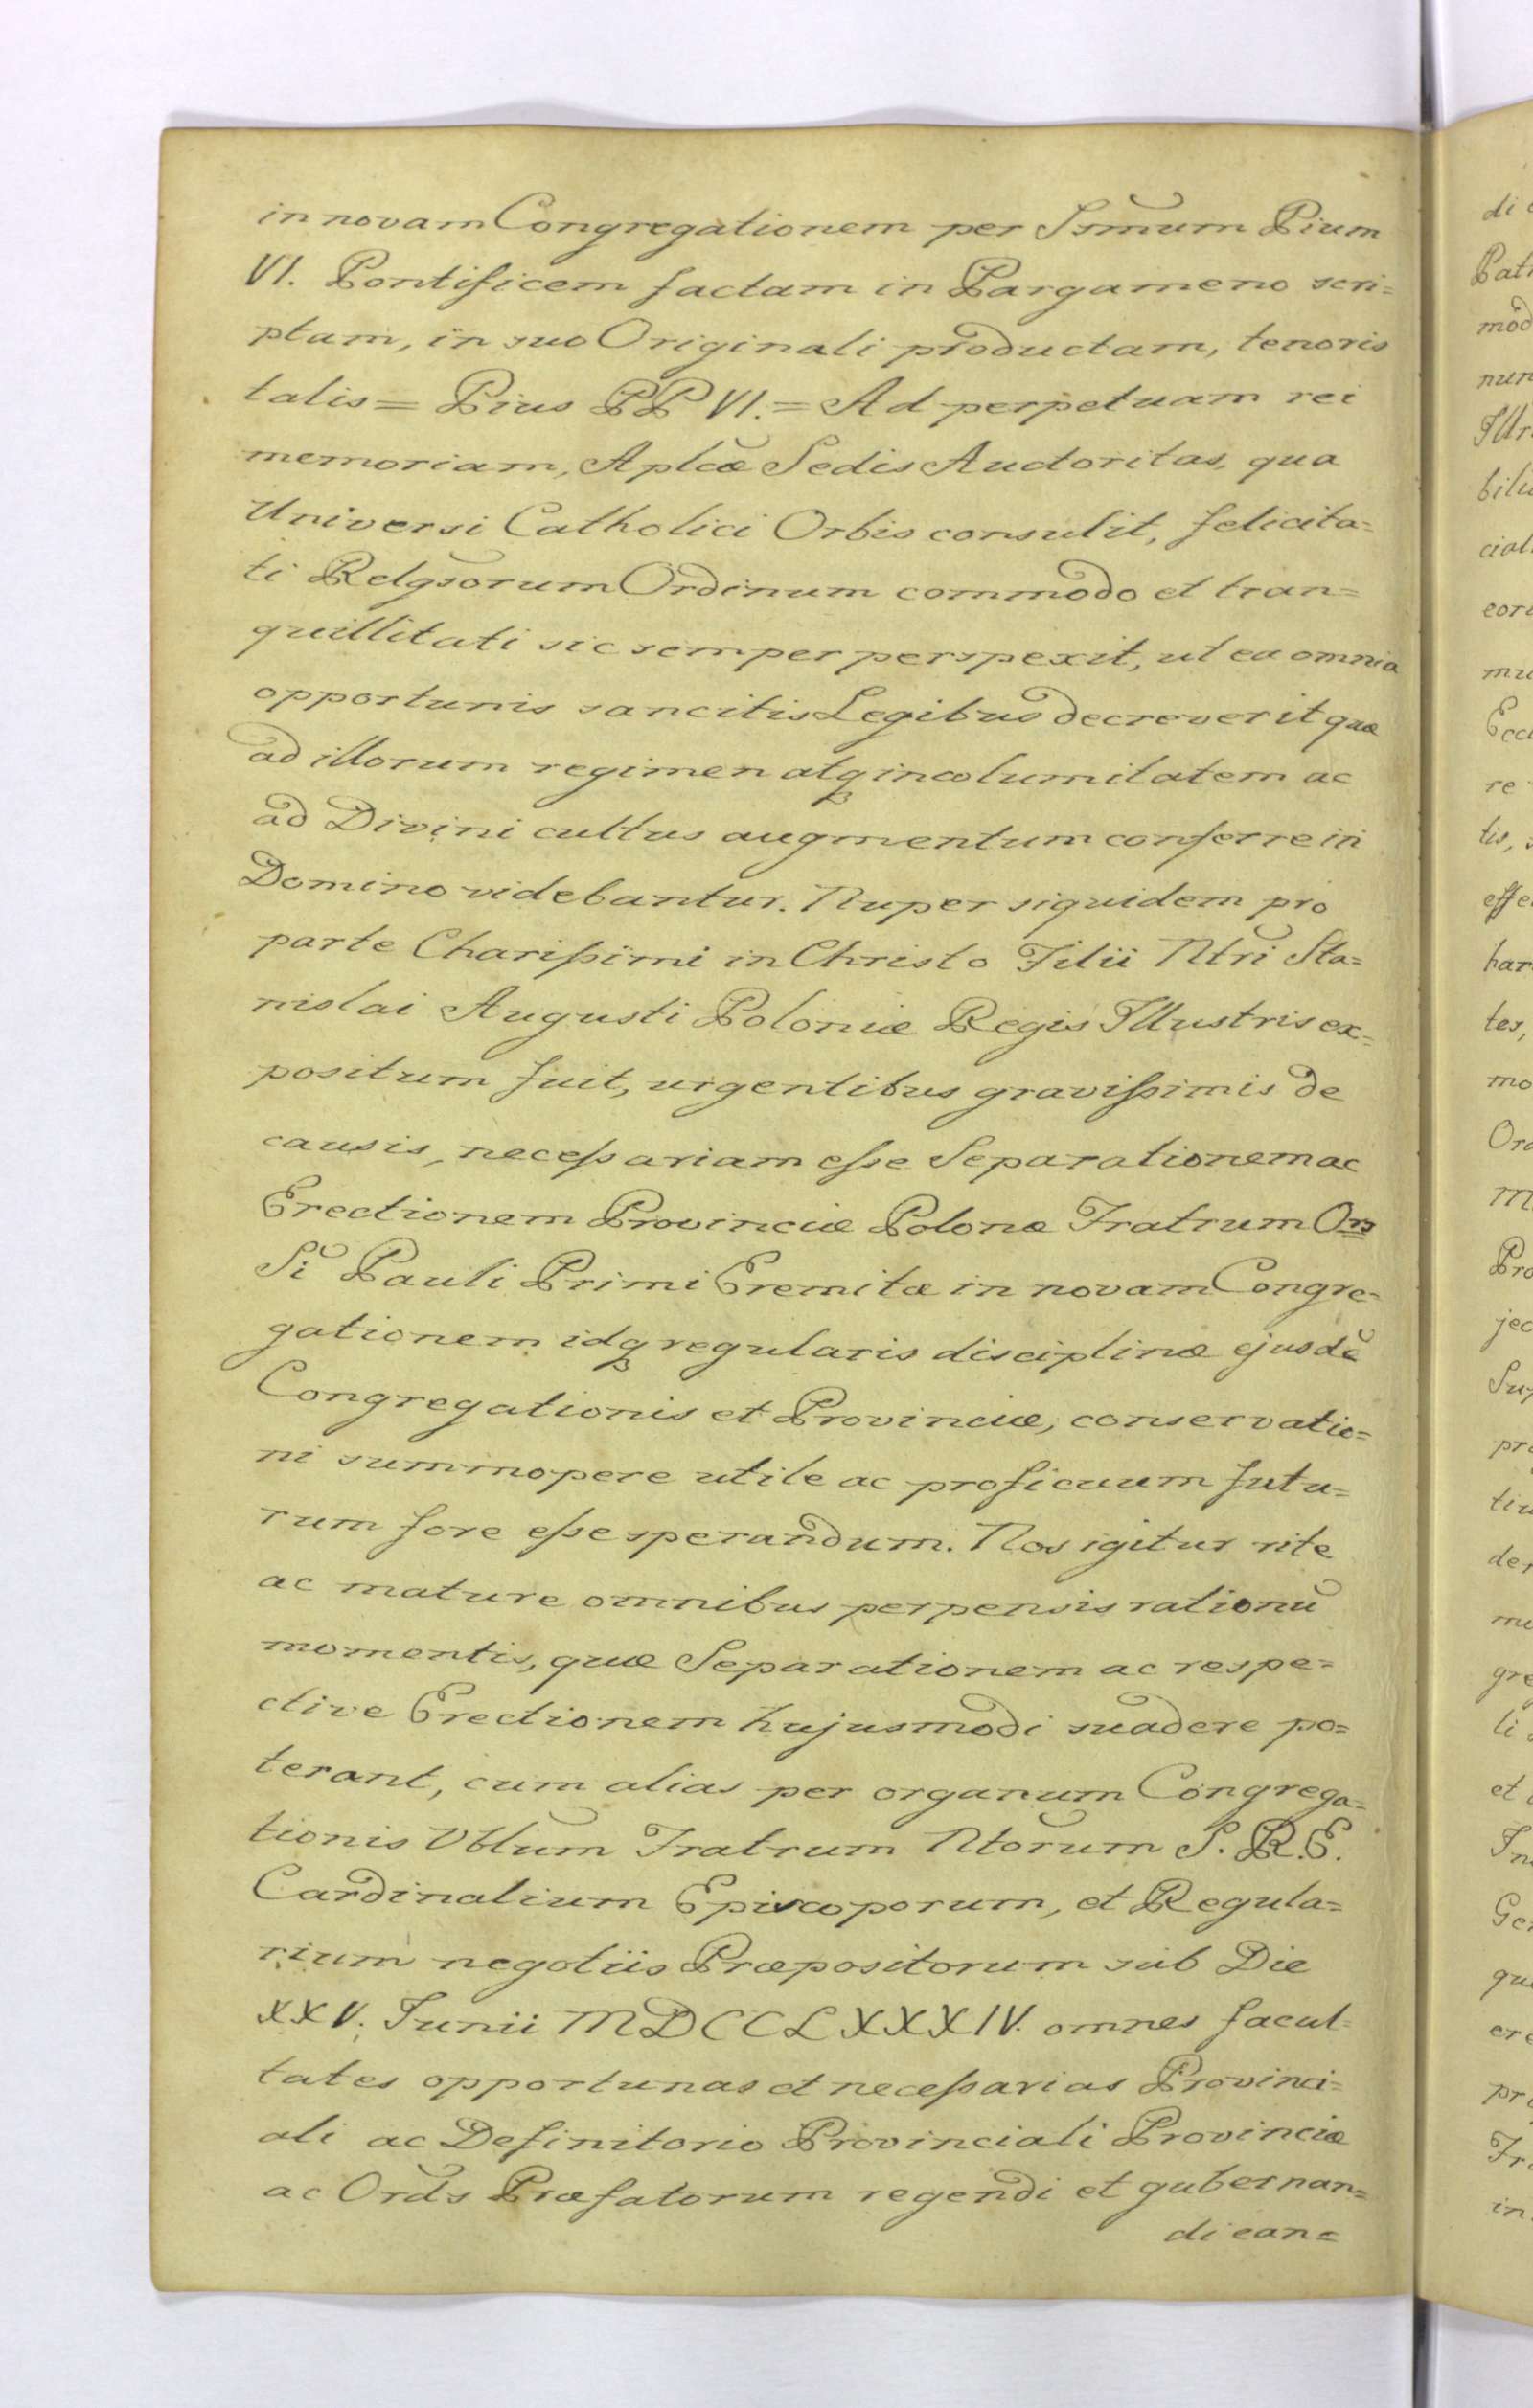 in novam Congregationem per Ssm̃um Pium
VI. Pontificem factam in Pargameno scri=
ptam, in suo Originali productam, tenoris
talis = Pius PP VI. = Ad perpetuam rei
memoriam, Aplcæ Sedis Auctoritas, qua
Universi Catholici Orbis consulit, felicita=
ti Relgsorum Ordinum commodo et tran=
quillitati sic semper perspexit, ut ea omnia
opportunis sancitis Legibus decreverit quæ
ad illorum regimen atq incolumitatem ac
ad Divini cultus augmentum conferre in
Domino videbantur. Nuper siquidem pro
parte Charißimi in Christo Filii Ntri Sta=
nislai Augusti Poloniæ Regis Illustris ex=
positum fuit, urgentibus gravißimis de
causis, neceßariam eße Separationem ac
Erectionem Provinciæ Polonæ Fratrum Ors
Si Pauli Primi Eremitæ in novam Congre=
gationem idq regularis disciplinæ ejusdē
Congregationis et Provinciæ, conservatio=
ni summopere utile ac proficuum futu=
rum fore eße sperandum. Nos igitur rite
ac mature omnibus perpensis rationū
momentis, quæ Separationem ac respe=
ctive Erectionem hujusmodi suadere po=
terant, cum alias per organum Congrega=
tionis Vblum Fratrum Ntorum S. R. E.
Cardinalium Episcoporum, et Regula=
rium negotiis Præpositorum sub Die
XXV. Junii MDCCLXXXIV. omnes facul=
tates opportunas et neceßarias Provinci=
ali ac Definitorio Provinciali Provinciæ
ac Ords Præfatorum regendi et gubernan=
di ean=